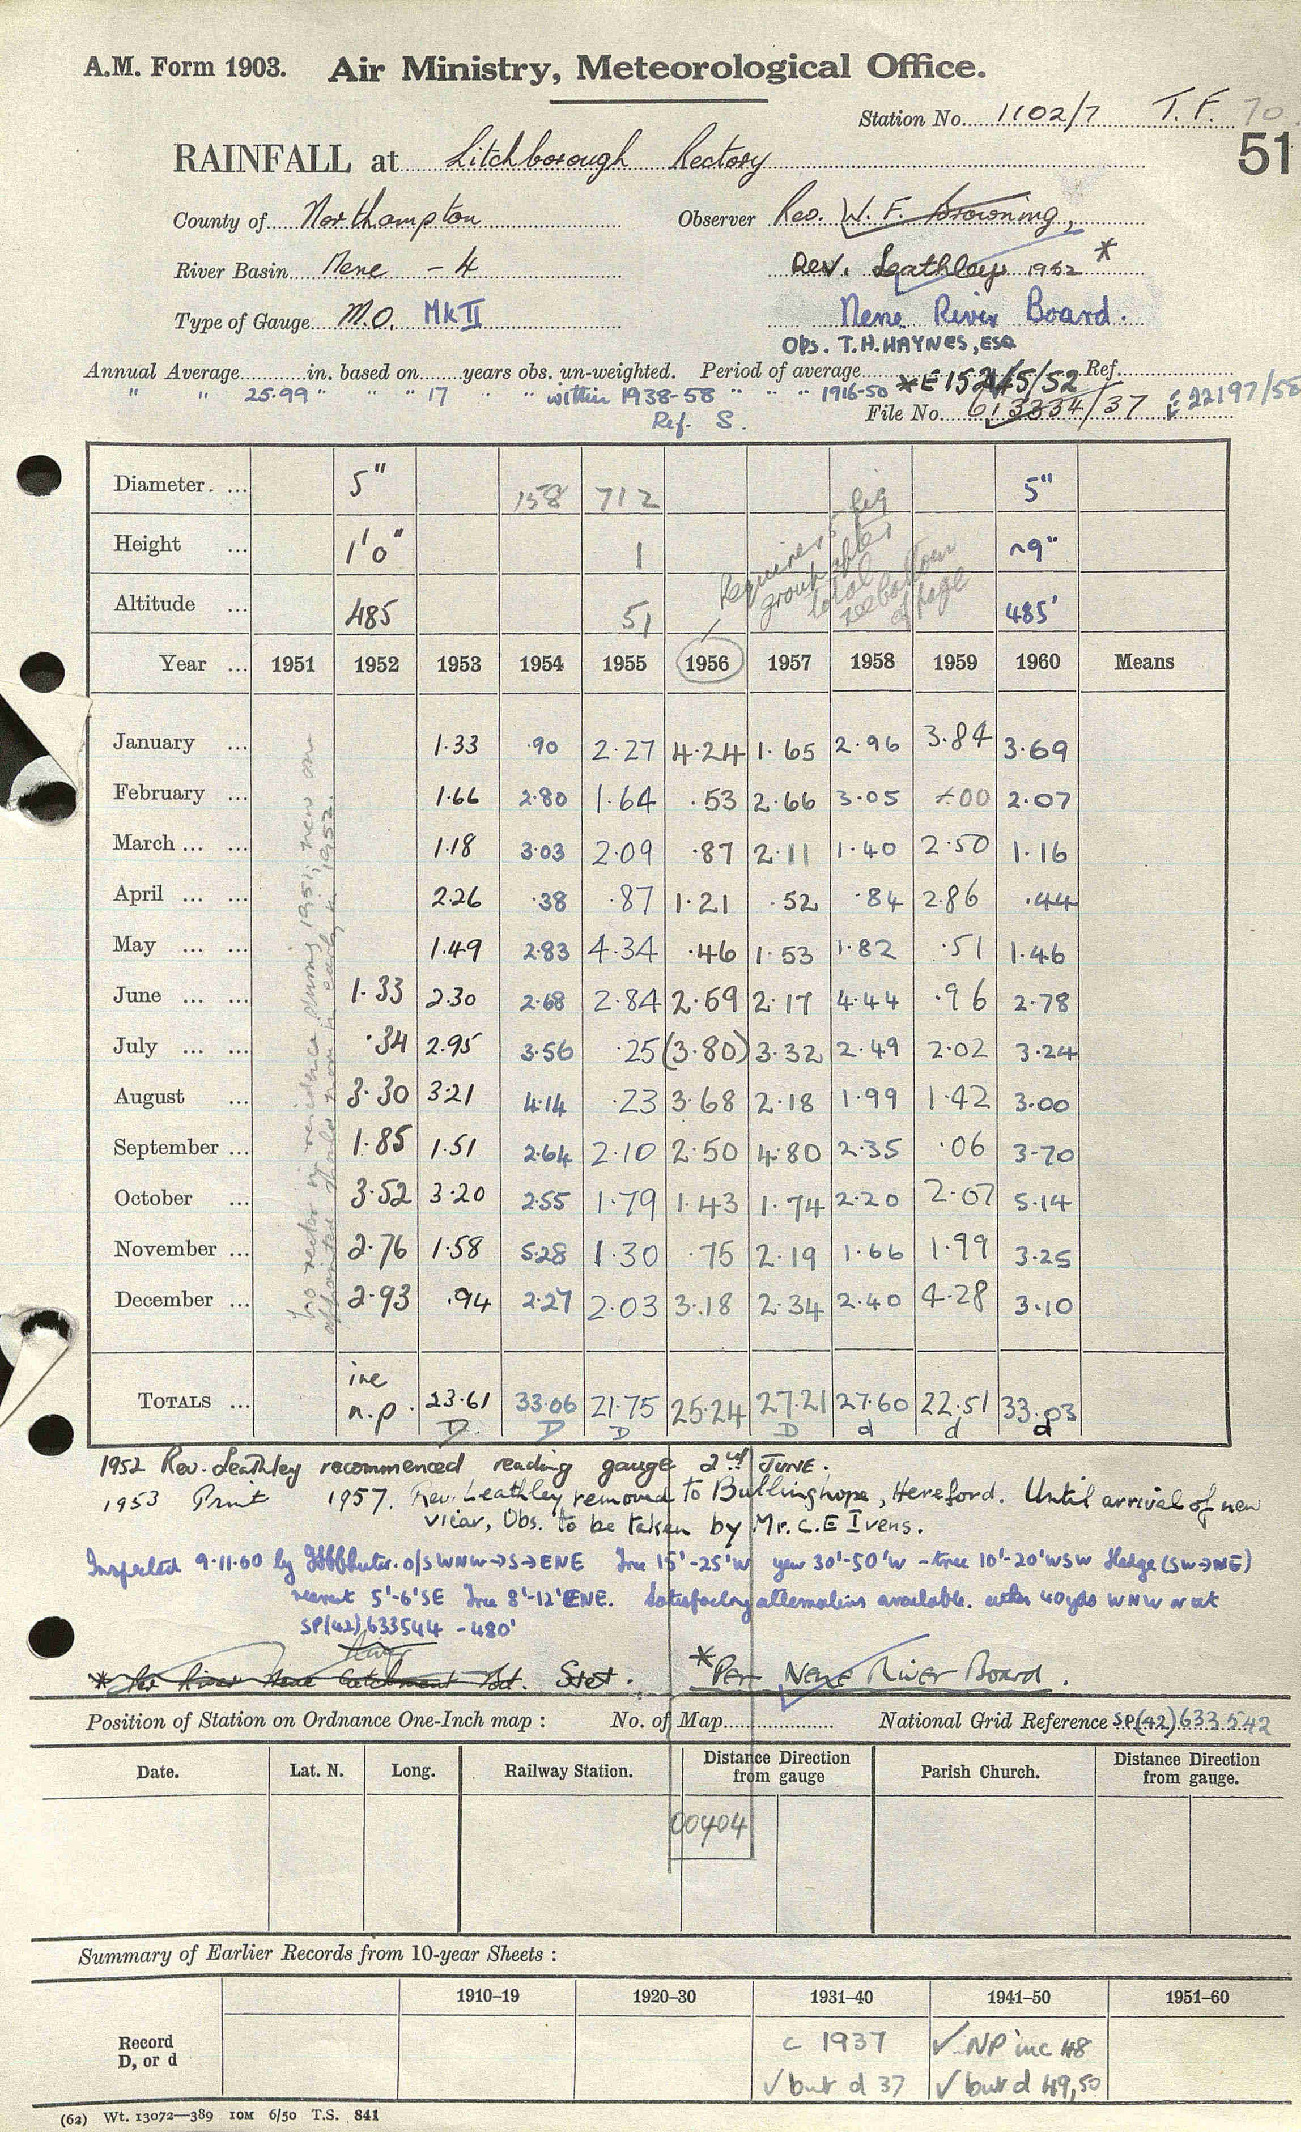 A.M. Form 1903. Air Ministry, Meteorological Office.
Station No. 1102/7 T.F. 70
51
RAINFALL at Litchborough Rectory
County of Northampton Observer Rev. W. F. Browning,
River Basin Nene - 4 Rev. Leathley 1952 *
Type of Gauge M.O. Mk II Nene River Board.
Obs. T.H. HAYNES, ESQ
Annual Average in. based on years obs. un-weighted. Period of average *E 15 /5/52 Ref.
" " 25.99 " " " 17 " " within 1938-58 " " " 1916-50
Ref. S. File No. 613334/37 E 22197/58
Diameter ... 5" 158 712 5"
Height ... 1'0" 1 ~9"
Altitude ... 485 51 485'
Requires 5 fig group after total see bottom of page
Year ... 1951 1952 1953 1954 1955 1956 1957 1958 1959 1960 Means
No rector in residence during 1951; new one appointed should move in early in 1952.
January ... 1.33 .90 2.27 4.24 1.65 2.96 3.84 3.69
February ... 1.66 2.80 1.64 .53 2.66 3.05 .00 2.07
March ... ... 1.18 3.03 2.09 .87 2.11 1.40 2.50 1.16
April ... ... 2.26 .38 .87 1.21 .52 .84 2.86 .44
May ... ... 1.49 2.83 4.34 .46 1.53 1.82 .51 1.46
June ... ... 1.33 2.30 2.68 2.84 2.59 2.17 4.44 .96 2.78
July ... ... .34 2.95 3.56 .25 (3.80) 3.32 2.49 2.02 3.24
August ... 3.30 3.21 4.14 .23 3.68 2.18 1.99 1.42 3.00
September ... 1.85 1.51 2.64 2.10 2.50 4.80 2.35 .06 3.70
October ... 3.52 3.20 2.55 1.79 1.43 1.74 2.20 2.07 5.14
November ... 2.76 1.58 5.28 1.30 .75 2.19 1.66 1.99 3.25
December ... 2.93 .94 2.27 2.03 3.18 2.34 2.40 4.28 3.10
TOTALS ... inc n.p. 23.61 33.06 21.75 25.24 27.21 27.60 22.51 33.03
D D D D d d d
1952 Rev. Leathley recommenced reading gauge 2nd JUNE.
1953 Print 1957. Rev. Leathley removed to Bullinghope, Hereford. Until arrival of new
vicar, Obs. to be taken by Mr. C.E Ivens.
Inspected 9.11.60 by O/S WNW→S→ENE Tree 15'-25'W yew 30'-50'W - tree 10'-20'WSW Hedge (SW→NE)
nearest 5'-6'SE Tree 8'-12'ENE. Satisfactory alternatives available. either 40yds WNW or at
SP(42)633544 - 480'
* The River Nene Catchment Bd. Stet. *Per Nene River Board.
Position of Station on Ordnance One-Inch map : No. of Map National Grid Reference SP(42)633542
Date. Lat. N. Long. Railway Station. Distance from gauge Direction Parish Church. Distance from gauge. Direction
00404
Summary of Earlier Records from 10-year Sheets :
1910–19 1920–30 1931–40 1941–50 1951–60
Record D, or d
c 1937 ✓ NP inc 48
✓ but d 37 ✓ but d 49,50
(62) Wt. 13072—389 10M 6/50 T.S. 841